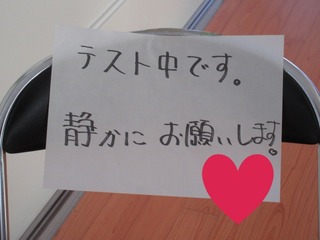 テスト中です。
静かに お願いします。